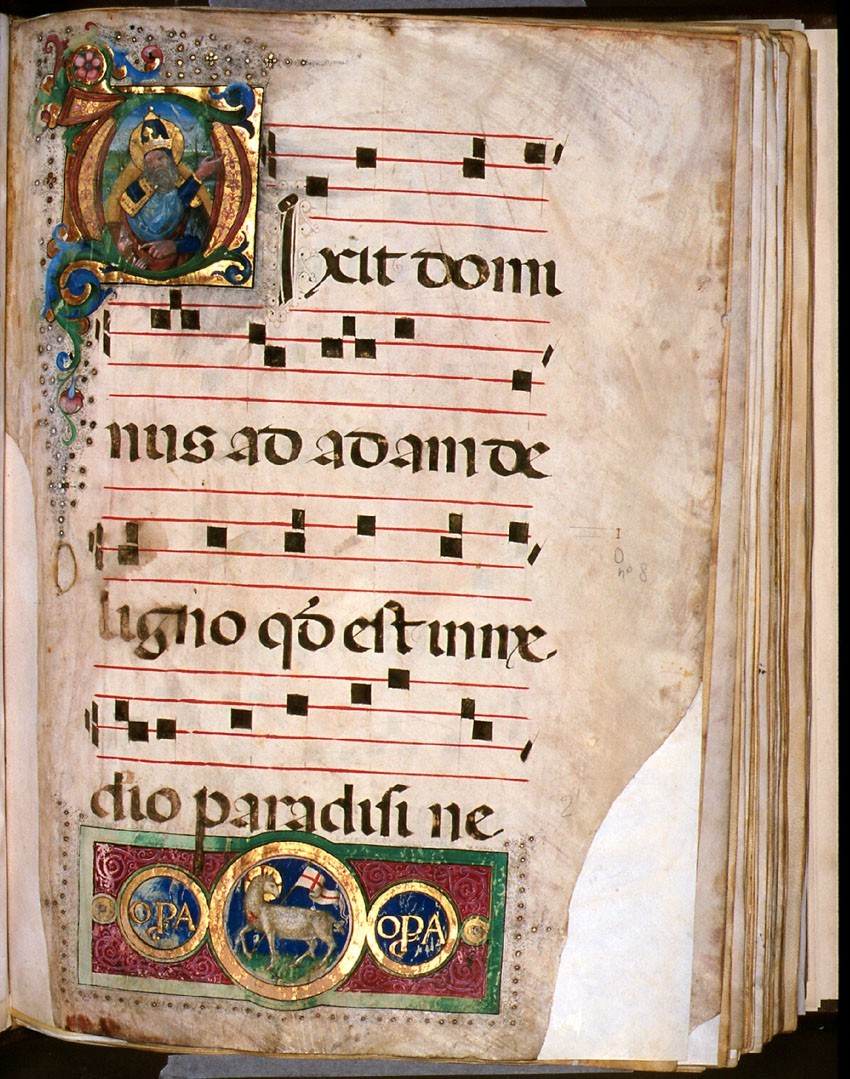 Dixit domi
nus ad adam de
ligno qd est in me
dio paradisi ne
OPA OPA